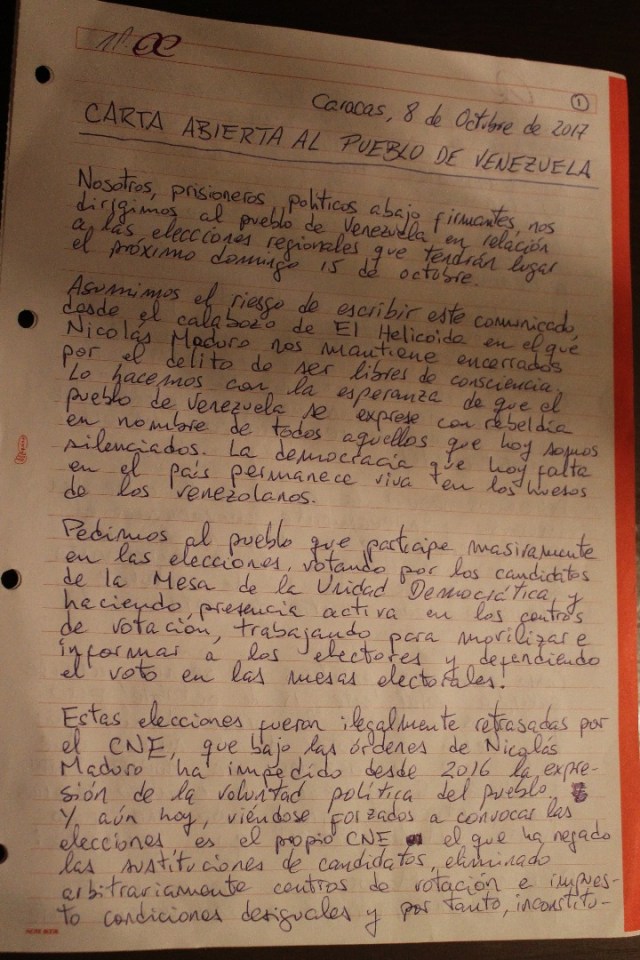 1
Caracas, 8 de Octubre de 2017
CARTA ABIERTA AL PUEBLO DE VENEZUELA
Nosotros, prisioneros políticos abajo firmantes, nos
dirigimos al pueblo de Venezuela en relación
a las elecciones regionales que tendrán lugar
el próximo domingo 15 de octubre.
Asumimos el riesgo de escribir este comunicado
desde el calabozo de El Helicoide en el que
Nicolás Maduro nos mantiene encerrados
por el delito de ser libres de consciencia.
Lo hacemos con la esperanza de que el
pueblo de Venezuela se exprese con rebeldía
en nombre de todos aquellos que hoy somos
silenciados. La democracia que hoy falta
en el país permanece viva en los huesos
de los venezolanos.
Pedimos al pueblo que participe masivamente
en las elecciones, votando por los candidatos
de la Mesa de la Unidad Democrática, y
haciendo presencia activa en los centros
de votación, trabajando para movilizar e
informar a los electores y defendiendo
el voto en las mesas electorales.
Estas elecciones fueron ilegalmente retrasadas por
el CNE, que bajo las órdenes de Nicolás
Maduro ha impedido desde 2016 la expre-
sión de la voluntad política del pueblo.
Y aún hoy, viéndose forzados a convocar las
elecciones, es el propio CNE el que ha negado
las sustituciones de candidatos, eliminado
arbitrariamente centros de votación e impues-
to condiciones desiguales y por tanto, inconstitu-